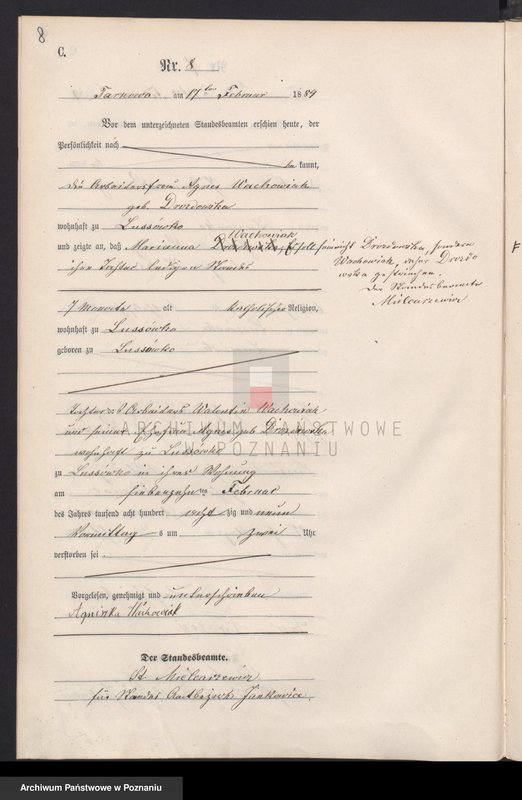 8
C.
Nr. 8
Tarnowo am 17ten Februar 1889
Vor dem unterzeichneten Standesbeamten erschien heute, der
Persönlichkeit nach
be kannt,
die Arbeitersfrau Agnes Wachowiak
geb. Drozdowska
wohnhaft zu Lussówko
Wachowiak
und zeigte an, daß Marianna Drozdowska, soll hier nicht Drozdowska, sondern
Wachowiak, daher Drozdo
wska gestrichen.
Der Standesbeamte
Mielcarzewicz
ihre Tochter ledigen Standes
7 Monate alt katholischer Religion,
wohnhaft zu Lussówko
geboren zu Lussówko
Tochter des Arbeiters Valentin Wachowiak
und seiner Ehefrau Agnes geb Drozdowska
wohnhaft zu Lussówko
zu Lussówko in ihrer Wohnung
am siebenzehnten Februar
des Jahres tausend acht hundert achtzig und neun
Vormittag s um zwei Uhr
verstorben sei.
Vorgelesen, genehmigt und unterschrieben
Agniszka Wachowiak
Der Standesbeamte.
St. Mielcarzewicz
für Standes Amtsbezirk Jankowice.
ARCHIWUM PAŃSTWOWE
W POZNANIU
Archiwum Państwowe w Poznaniu